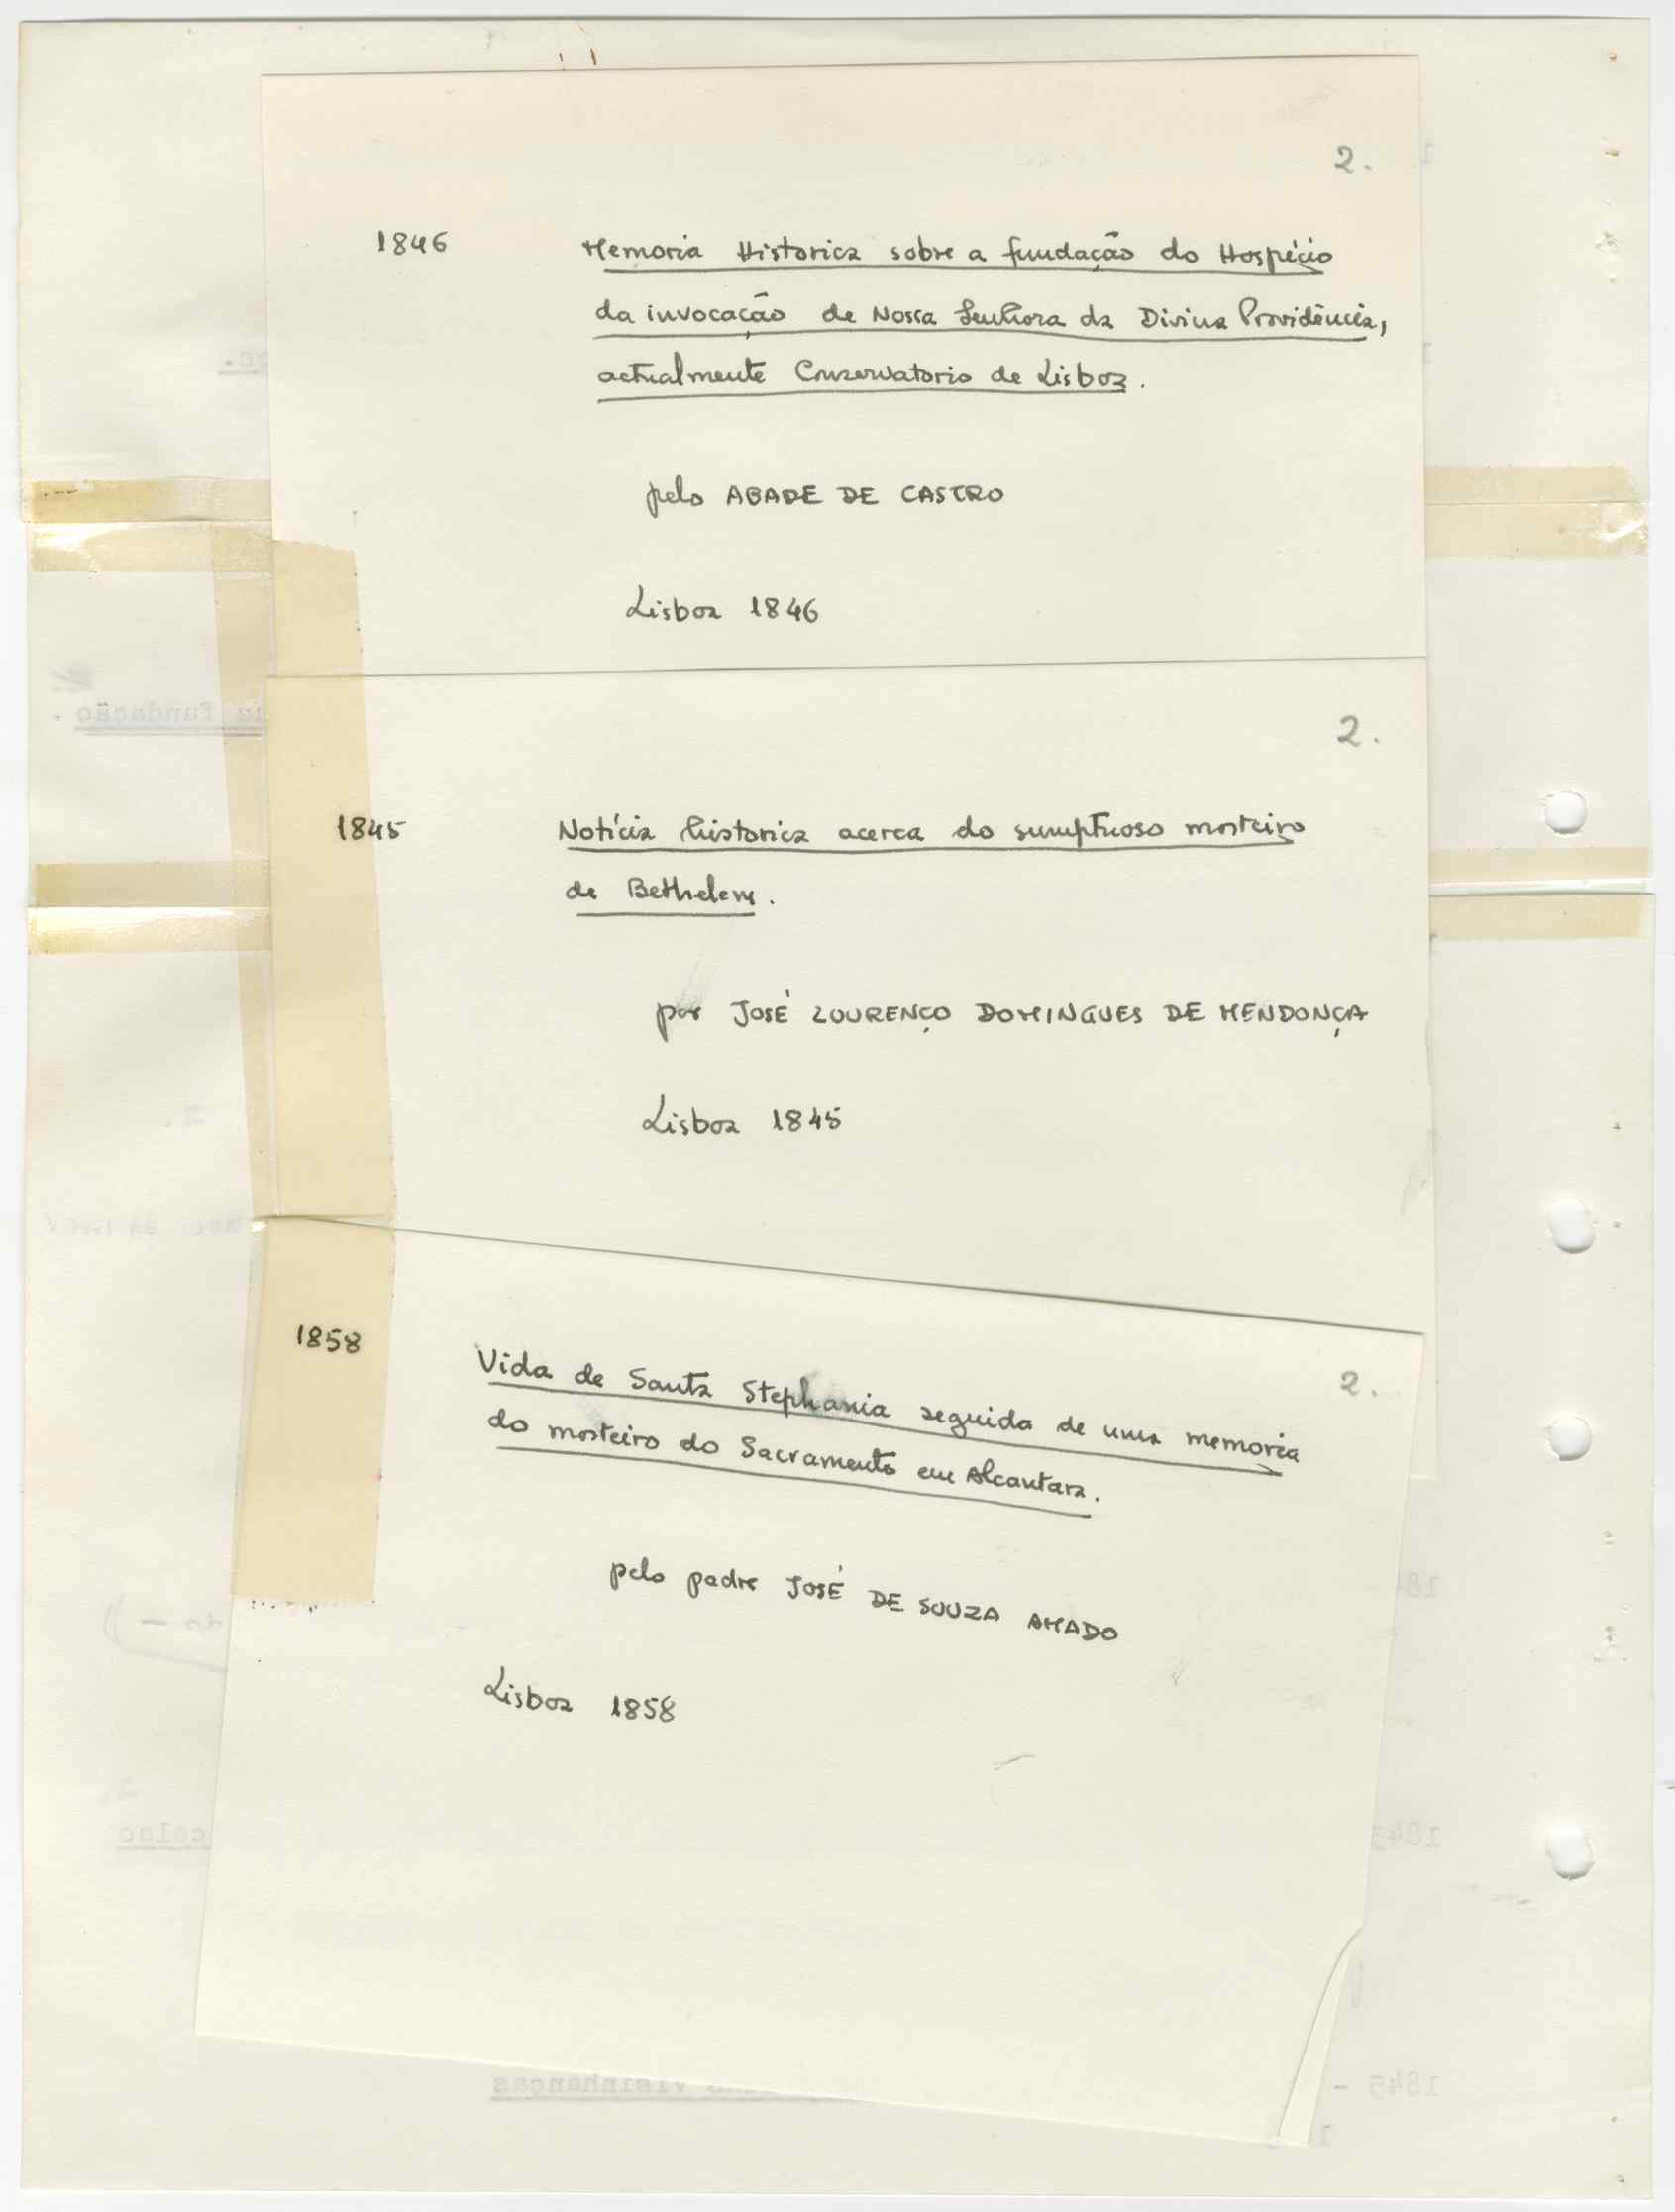 2.
1846 Memoria Historica sobre a fundação do Hospício
da invocação de Nossa Senhora da Divina Providência,
actualmente Conservatorio de Lisboa.
pelo ABADE DE CASTRO
Lisboa 1846
2.
1845 Notícia historica acerca do sumptuoso mosteiro
de Bethelem.
por JOSÉ LOURENÇO DOMINGUES DE MENDONÇA
Lisboa 1845
2.
1858 Vida de Santa Stephania seguida de uma memoria
do mosteiro do Sacramento em Alcantara.
pelo padre JOSÉ DE SOUZA AMADO
Lisboa 1858
fundação.
1845 -
visinhanças